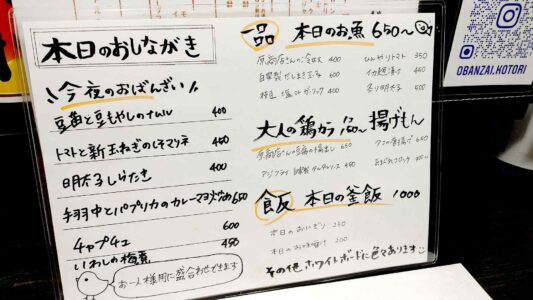 本日のおしながき
今夜のおばんざい
豆苗と豆もやしのナムル 400
トマトと新玉ねぎのしそマリネ 450
明太子しらたき 400
手羽中とパプリカのカレーマヨ炒め 650
チャプチェ 600
いわしの梅煮 450
お一人様用に盛合わせできます
一品 本日のお魚 650〜
400
ひんやりトマト 350
自家製だしまき玉子 600
イカ麹漬け 450
枝豆 塩orガーリック 400
炙り明太子 500
大人の鶏から 揚げもん
650
アジフライ 自家製タルタルソース 450
飯 本日の釜飯 1000
本日のおにぎり 250
本日のお味噌汁 200
その他ホワイトボードに色々あります
OBANZAI.KOTORI